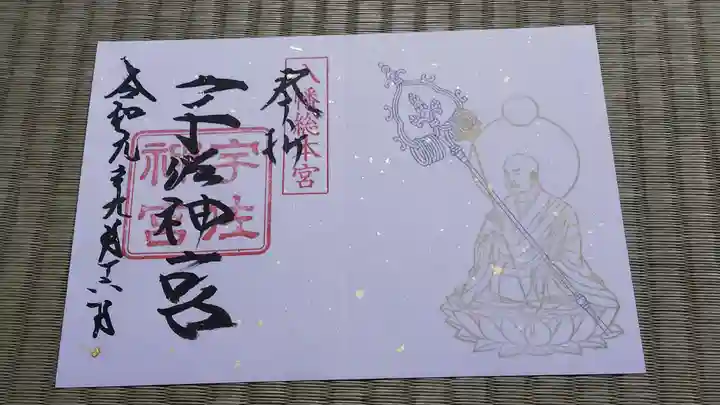 奉拝
八幡総本宮
宇佐神宮
宇佐
神宮
令和九年九月十六日